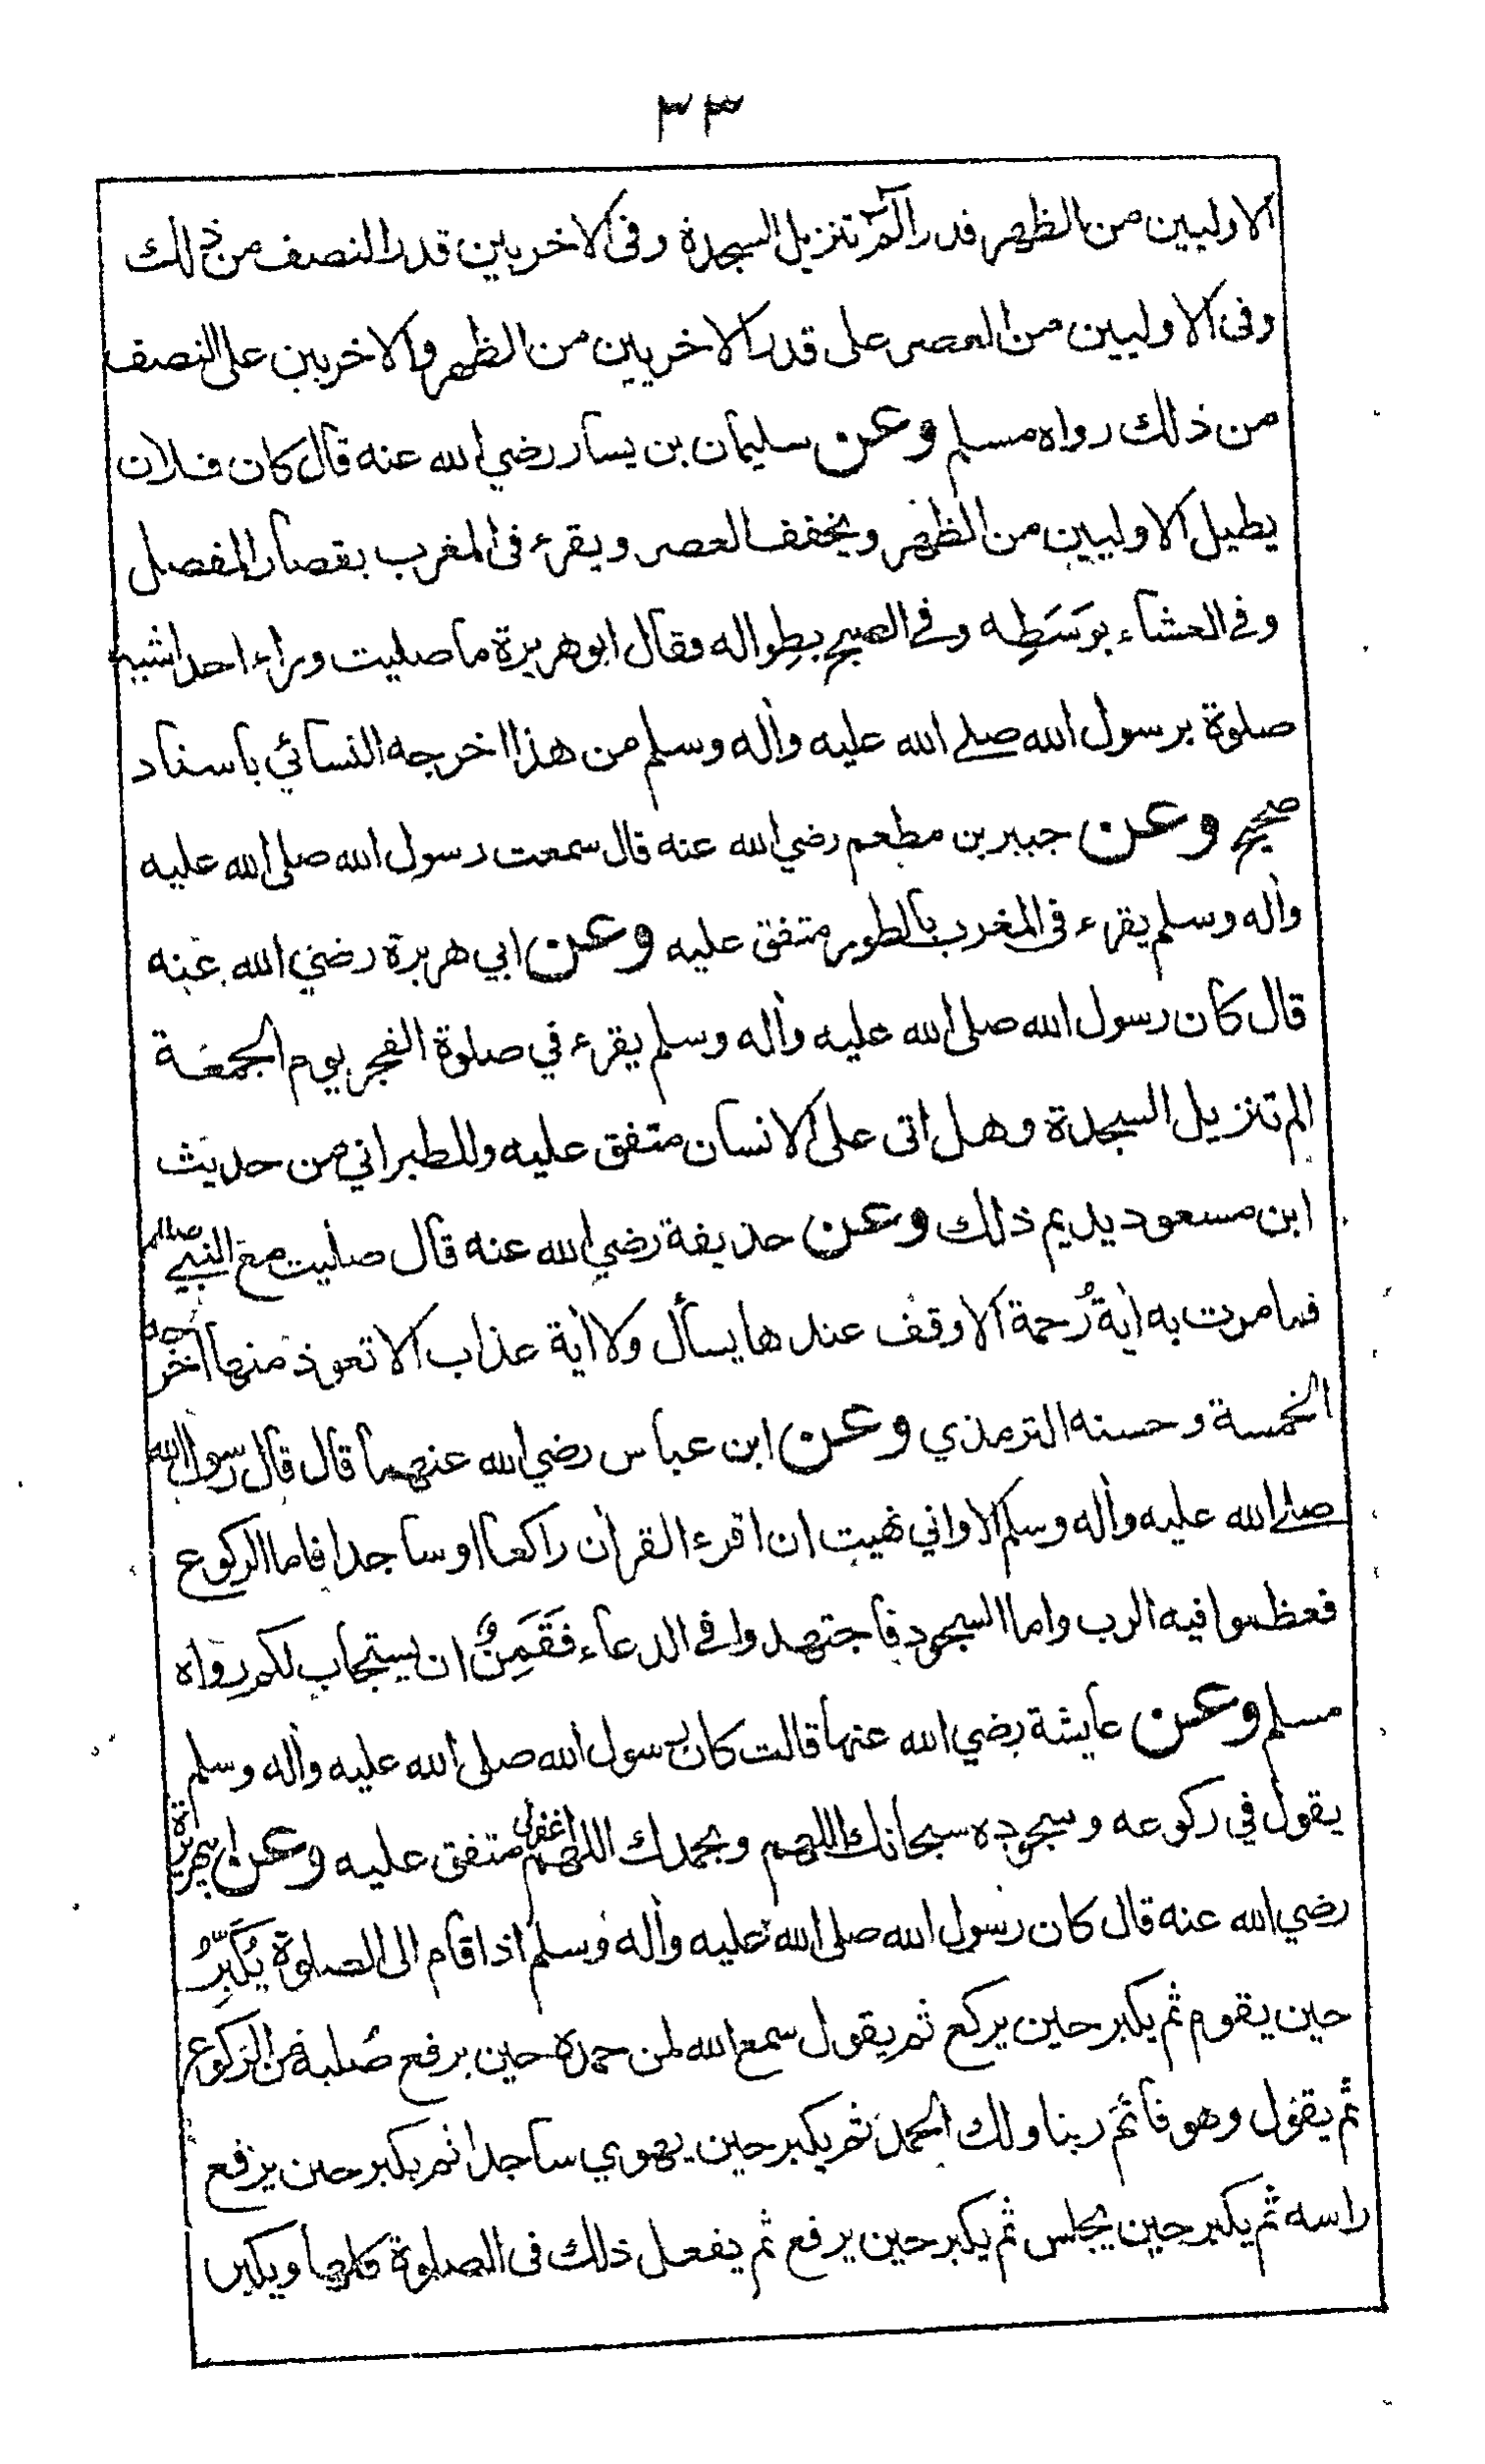 ٣٣
الاوليين من الظهر قدر الٓمّ تنزيل السجدة وفى الاخريين قدر النصف من ذلك
وفى الاوليين من العصر على قدر الاخريين من الظهر والاخريين على النصف
من ذلك رواه مسلم وعن سليمان بن يسار رضي الله عنه قال كان فلان
يطيل الاوليين من الظهر ويخفف العصر ويقرء فى المغرب بقصار المفصل
وفي العشاء بوَسَطِه وفي الصبح بطِواله فقال ابوهريرة ما صليت وراء احد اشبه
صلوة برسول الله صلے الله عليه واٰله وسلم من هذا اخرجه النسائي باسناد
صحيح وعن جبير بن مطعم رضي الله عنه قال سمعت رسول الله صلى الله عليه
واٰله وسلم يقرء فى المغرب بالطور متفق عليه وعن ابي هريرة رضي الله عنه
قال كان رسول الله صلى الله عليه واٰله وسلم يقرء في صلوة الفجر يوم الجمعة
الم تنزيل السجدة وهل اتى على الانسان متفق عليه وللطبراني من حديث
ابن مسعود يديم ذلك وعن حذيفة رضي الله عنه قال صليت مع النبي صللم
فما مرت به اٰية رَحمة الا وقف عندها يسأل ولا اٰية عذاب الا تعوذ منها اخرجه
الخمسة وحسنه الترمذي وعن ابن عباس رضي الله عنهما قال قال رسول الله
صلے الله عليه واٰله وسلم الا واني نهيت ان اقرء القراٰن راكعا او ساجدا فاما الركوع
فعظموا فيه الرب واما السجود فاجتهدوا في الدعاء فَقَمِنٌ ان يستجاب لكم رواه
مسلم وعن عايشة رضي الله عنها قالت كان رسول الله صلى الله عليه واٰله وسلم
يقول في ركوعه وسجوده سبحانك اللهم وبحمدك اللهم اغفرلى متفق عليه وعن ابي هريرة
رضي الله عنه قال كان رسول الله صلى الله عليه واٰله وسلم اذا قام الى الصلوة يُكَبِّرُ
حين يقوم ثم يكبر حين يركع ثم يقول سمع الله لمن حمده حين يرفع صُلبه من الركوع
ثم يقول وهو قائم ربنا ولك الحمد ثم يكبر حين يهوي ساجدا ثم يكبر حين يرفع
راسه ثم يكبر حين يجلس ثم يكبر حين يرفع ثم يفعل ذلك فى الصلوة كلها ويكبر